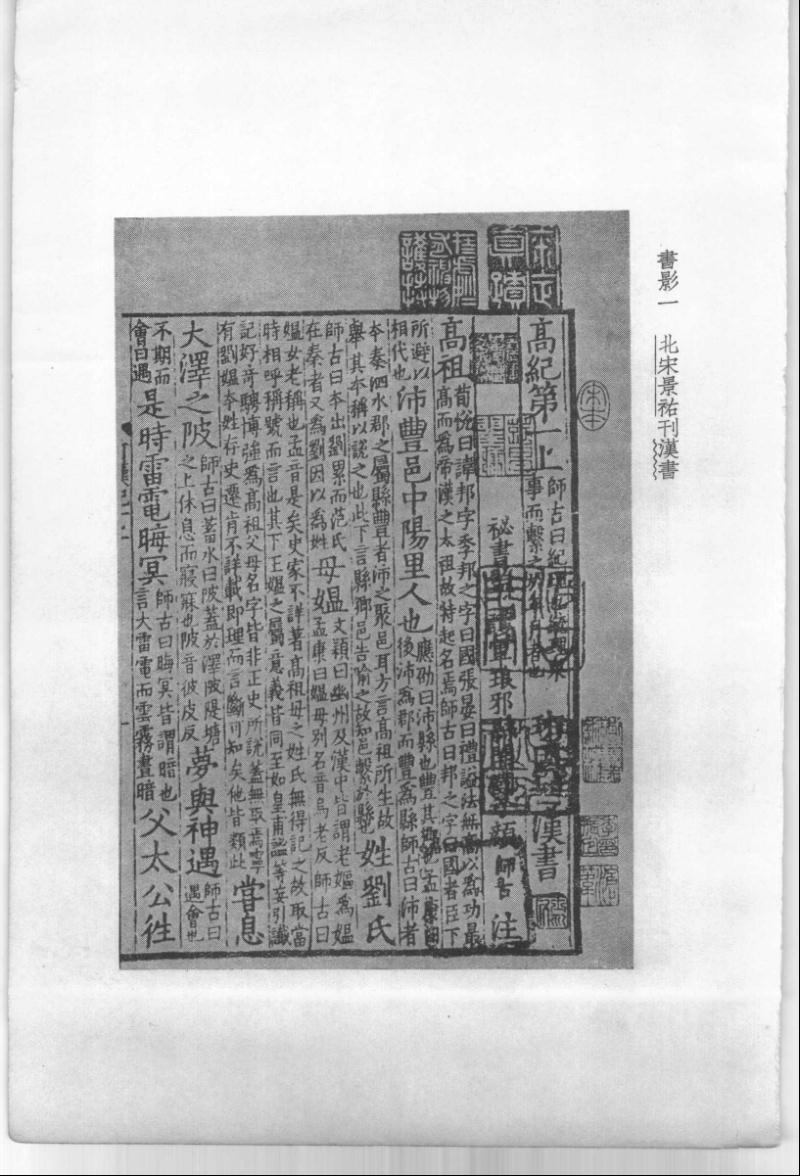 書影一 北宋景祐刊漢書
宋本
高紀第一上 師古曰紀理也統理眾
事而繫之於年月者也 漢書
祕書監上護軍琅邪縣開國子顏 師古 注
高祖 荀悅曰諱邦字季邦之字曰國張晏曰禮謚法無高以為功最
高而為帝漢之太祖故特起名焉師古曰邦之字曰國者臣下
所避以
相代也 沛豐邑中陽里人也 應劭曰沛縣也豐其鄉也孟康曰
後沛為郡而豐為縣師古曰沛者
本秦泗水郡之屬縣豐者沛之聚邑耳方言高祖所生故
舉其本稱以說之也此下言縣鄉邑告喻之故知邑繫於縣也 姓劉氏
師古曰本出劉累而范氏
在秦者又為劉因以為姓 母媼 文穎曰幽州及漢中皆謂老嫗為媼
孟康曰媼母別名音烏老反師古曰
媼女老稱也孟音是矣史家不詳著高祖母之姓氏無得記之故取當
時相呼稱號而言也其下王媼之屬意義皆同至如皇甫謐等妄引讖
記好奇騁博強為高祖父母名字皆非正史所說蓋無取焉寧
有劉媼本姓存史遷肯不詳載即理而言斷可知矣他皆類此 嘗息
大澤之陂 師古曰蓄水曰陂蓋於澤陂隄塘
之上休息而寢寐也陂音彼皮反 夢與神遇 師古曰
遇會也
不期而
會曰遇 是時雷電晦冥 師古曰晦冥皆謂暗也
言大雷電而雲霧晝暗 父太公往